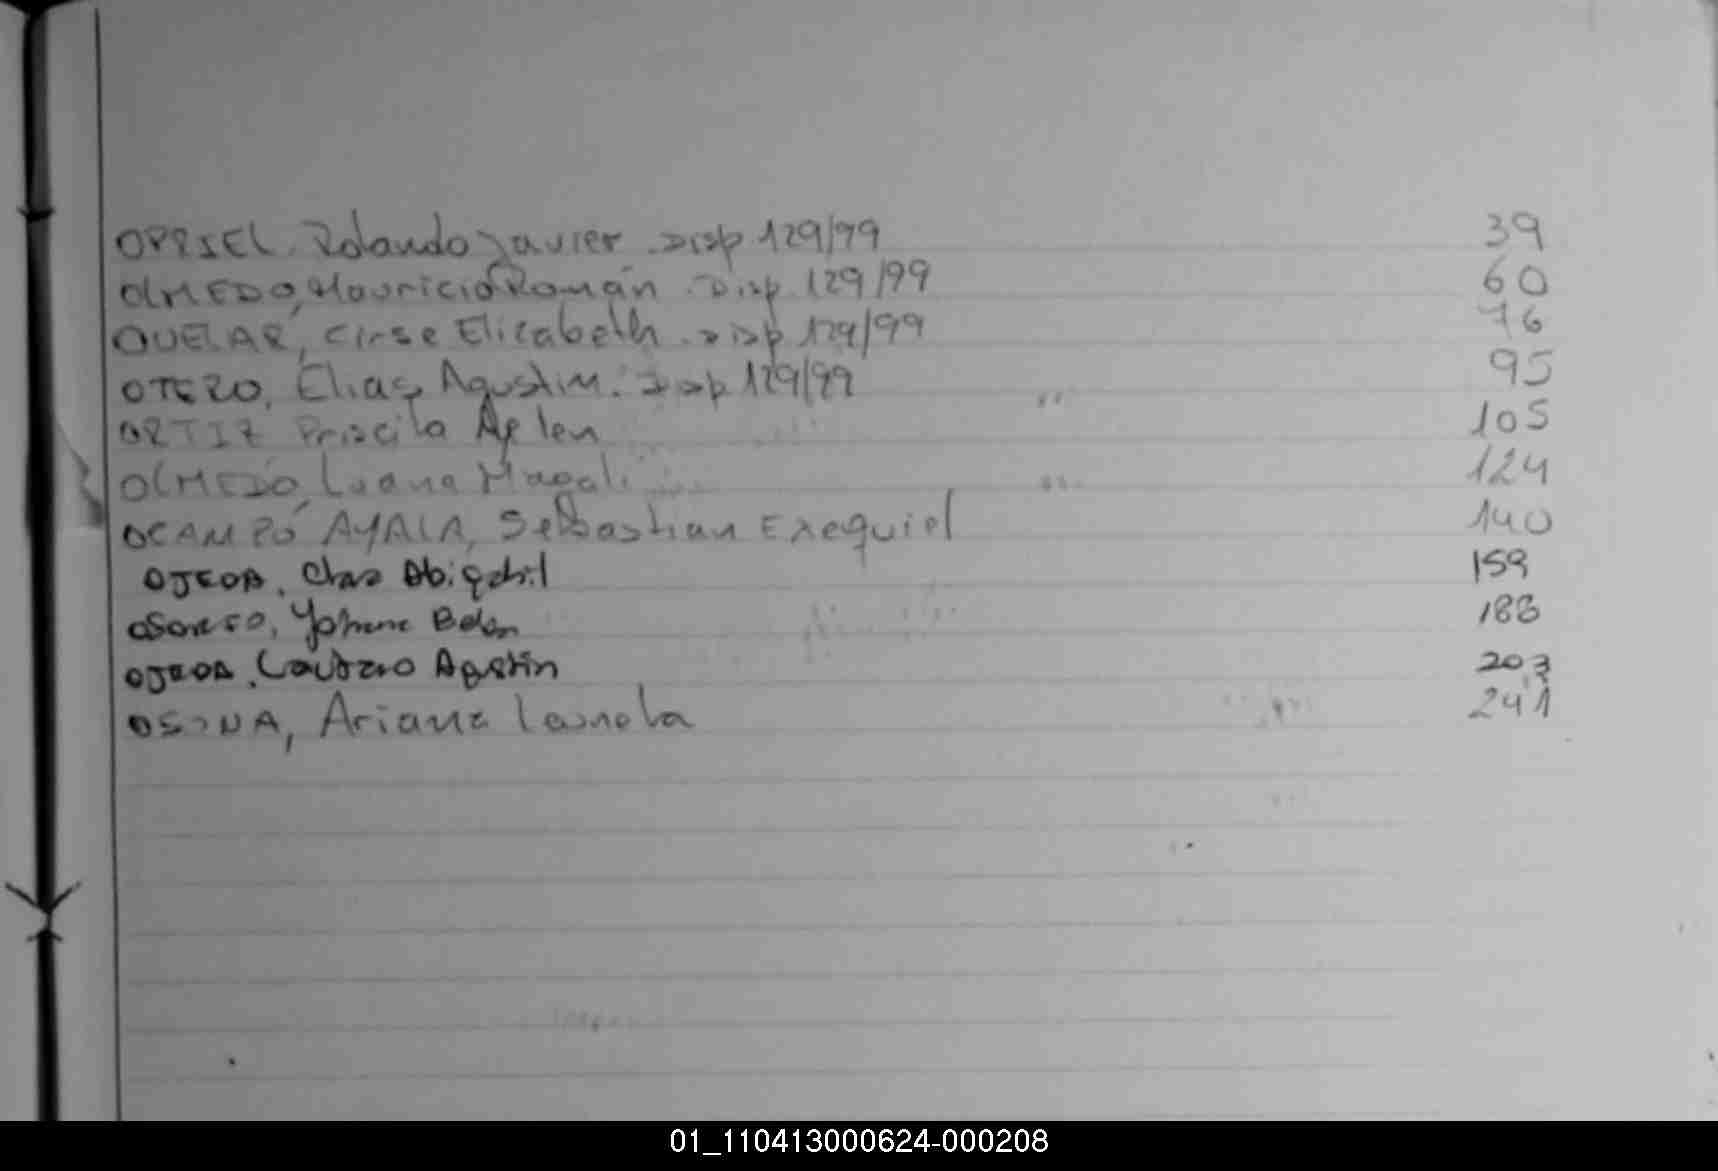 OPRIEL. Rolando Javier. Disp 129/99 39
OLMEDO, Mauricio Román. Disp 129/99 60
OVELAR, Cirse Elizabeth. Disp 129/99 76
OTERO, Elias Agustin. Disp 129/99 95
ORTIZ Priscila Aylen 105
OLMEDO, Luana Magali 124
OCAMPO AYALA, Sebastian Exequiel 140
OJEDA, Abigahil 159
Belen 188
OJEDA, Lautaro Agustin 203
Ariana 241
01_110413000624-000208